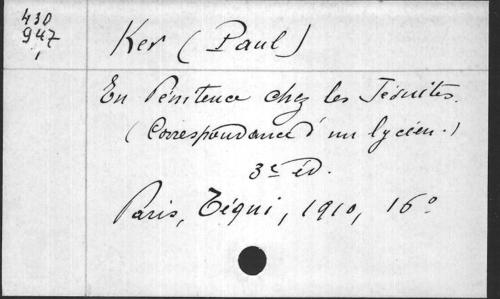 430
947
1
Ker (Paul)
En Pénitence chez les Jésuites.
(Correspondance d'un lycéen.)
3e éd.
Paris, Téqui, 1910, 16°